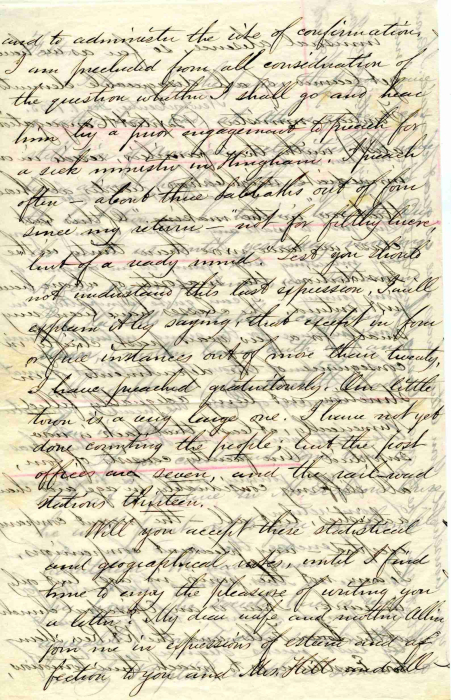 and to administer the rite of confirmation,
I am precluded from all consideration of
the question whether I shall go and hear
him by a prior engagement to preach for
a sick minister in Hingham. I preach
often – about three Sabbaths out of four
since my return – "not for filthy lucre,
but of a ready mind." Lest you should
not understand this last expression, I will
explain it by saying, that except in four
or five instances out of more than twenty,
I have preached gratuitously. Our little
town is a very large one. I have not yet
done counting the people; but the post
offices are seven, and the rail-road
stations thirteen.
Will you accept these statistical
and geographical notes, until I find
time to enjoy the pleasure of writing you
a letter? My dear wife and mother
join me in expressions of esteem and af
fection to you and Mrs.